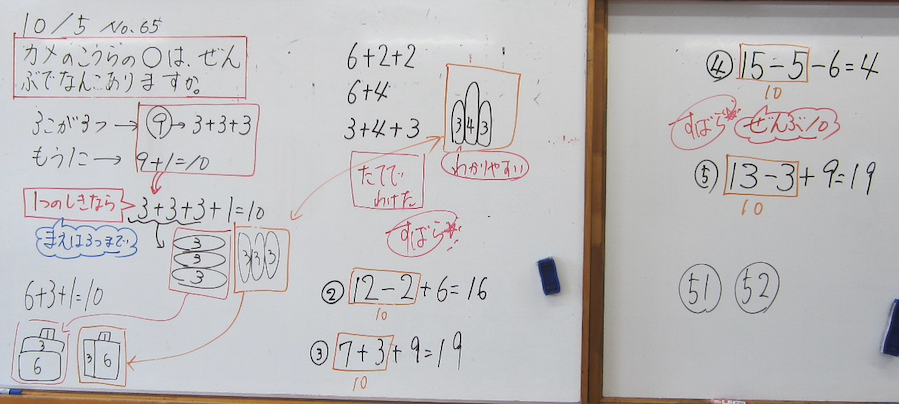 10/5 No.65
カメのこうらの○は、ぜん
ぶでなんこありますか。
3こが3つ→⑨→3+3+3
もう1こ→9+1=10
1つのしきなら
3+3+3+1=10
まえは3つまで
3
3
3
3 3 3
6+3+1=10
1
3
6
1
3 6
6+2+2
6+4
3+4+3
3 4 3
わかりやすい
たてで
わけた
すばら
② 12-2+6=16
10
③ 7+3+9=19
10
④ 15-5-6=4
10
すばら
ぜんぶ10
⑤ 13-3+9=19
10
51 52